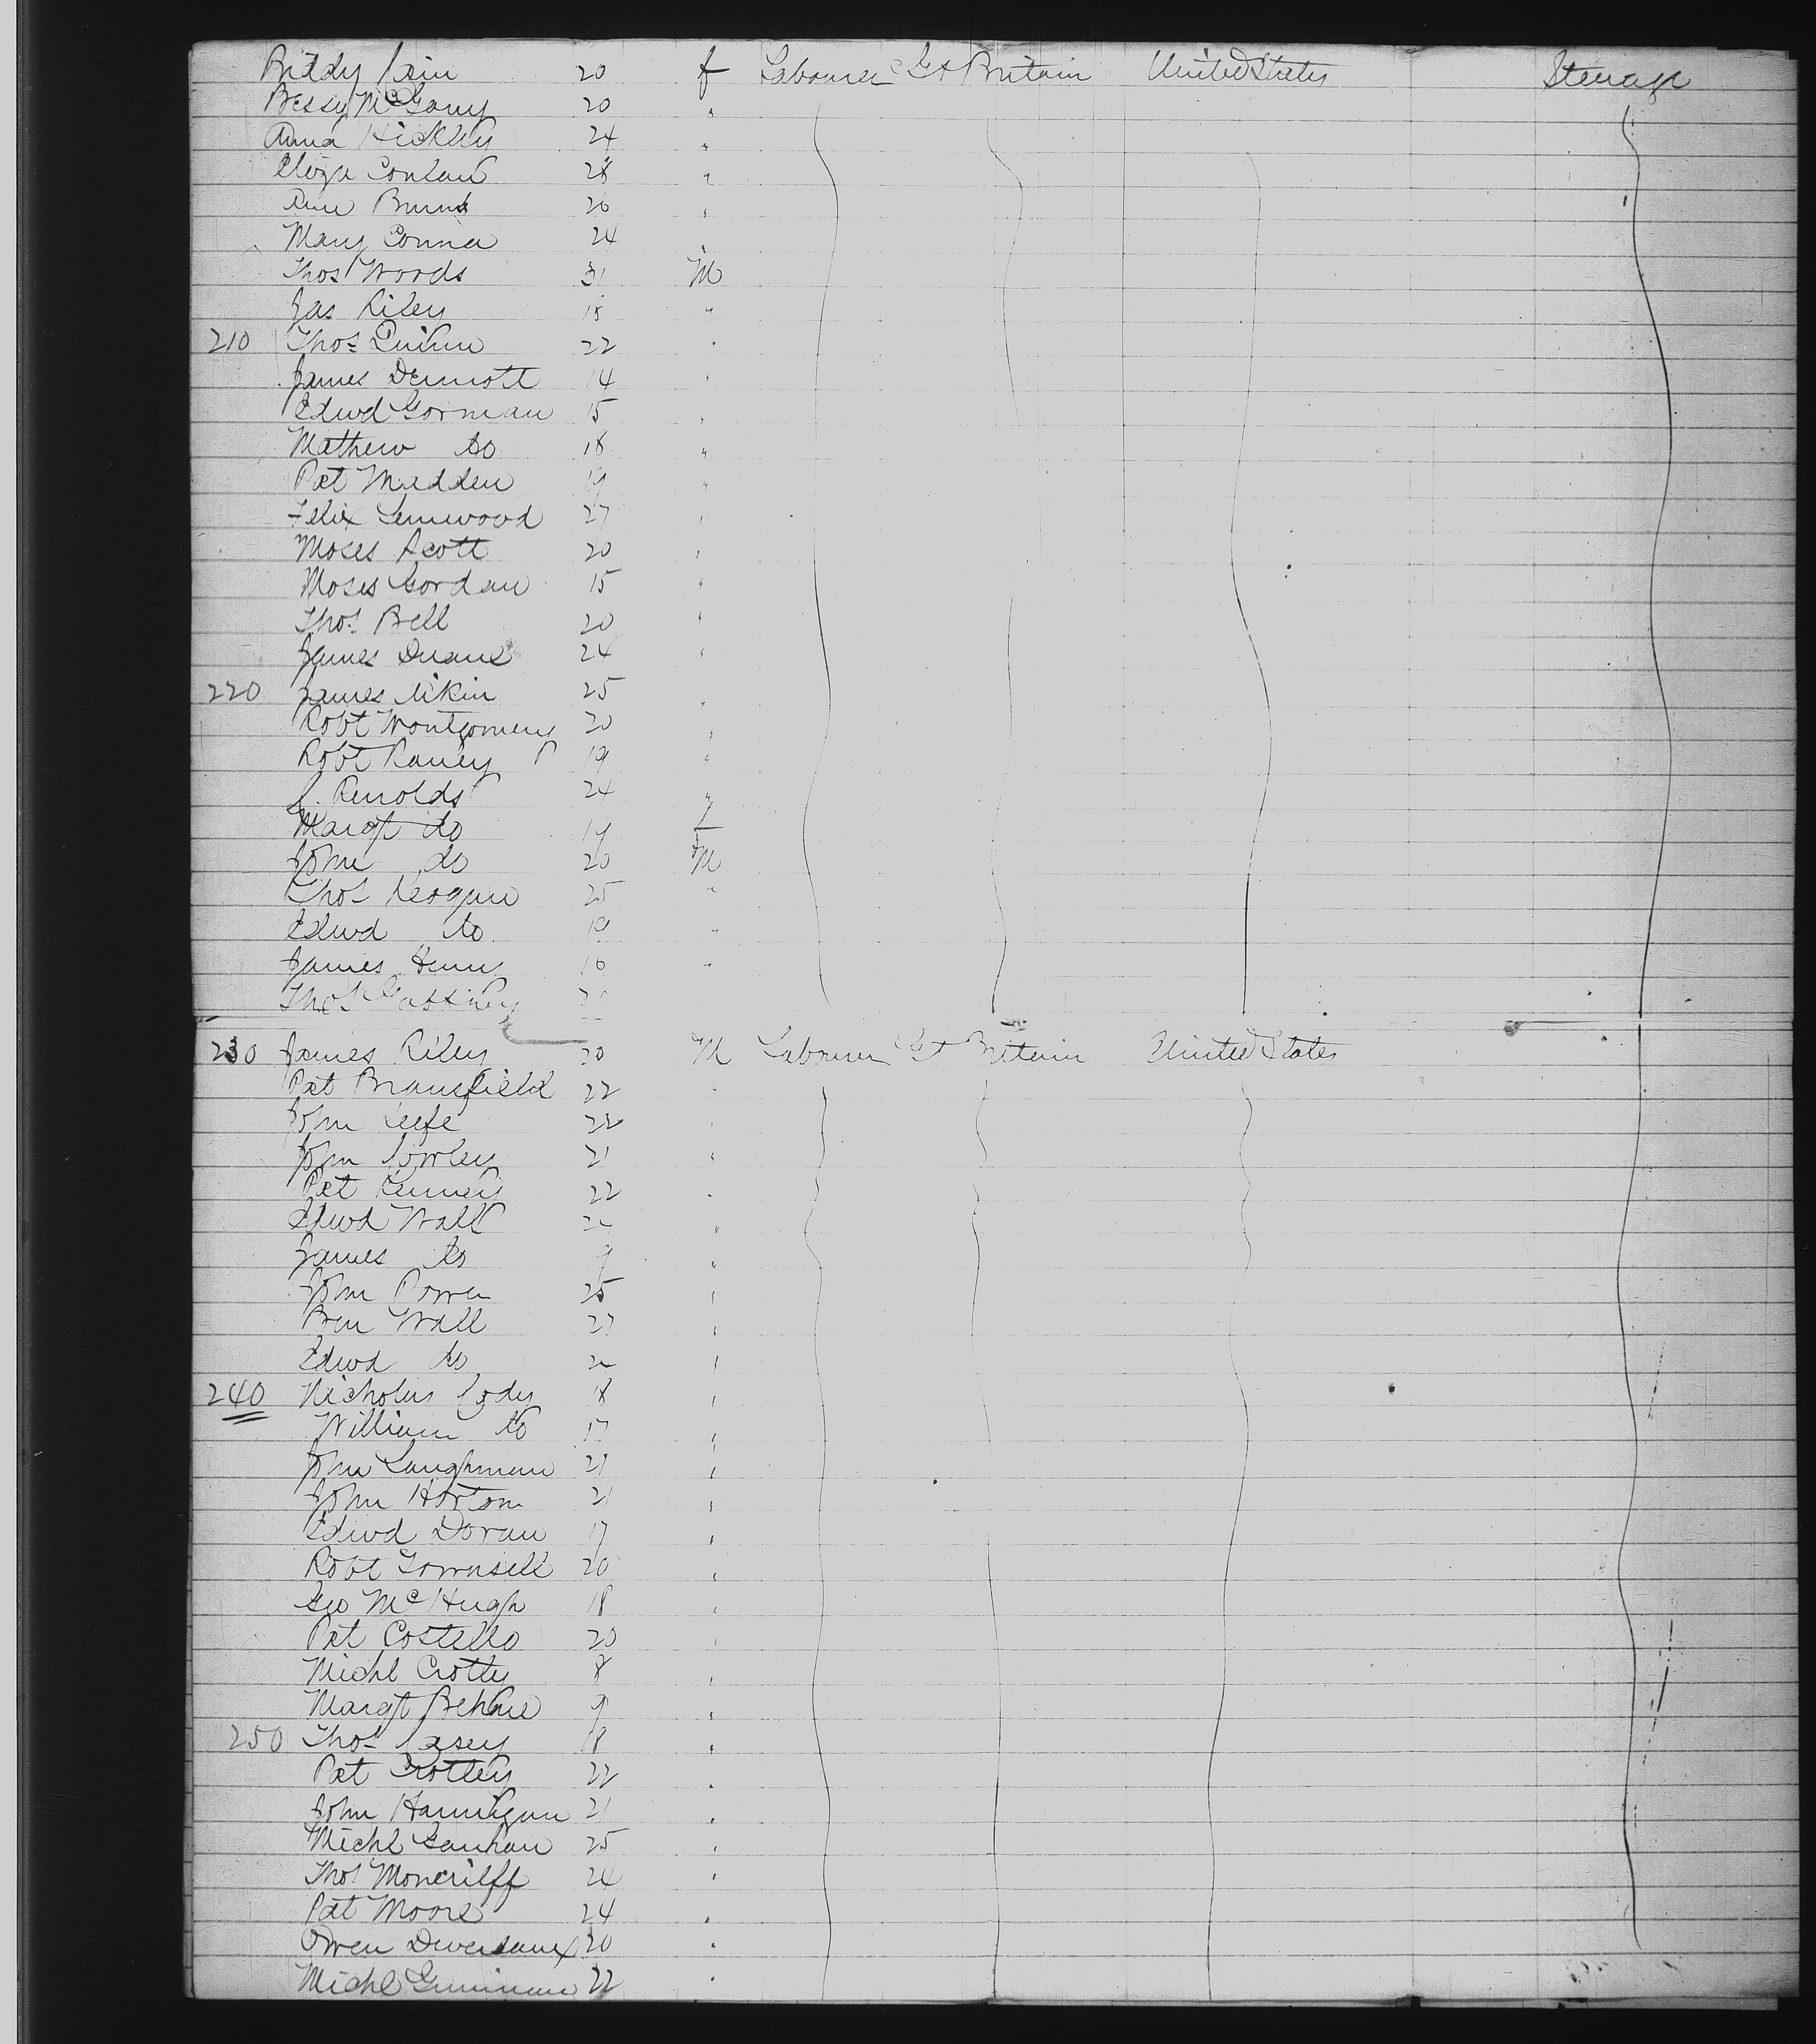 Biddy Cain 20 f Labourer Gt Britain United States Steerage
Bessy McGarry 20 "
Anna Hickley 24 "
Eliza Conlan 28 "
Ann Burns 20 "
Mary Conner 24 "
Thos Woods 31 M
Jas Riley 18 "
210 Thos Quinn 22 "
James Dermott 14 "
Edwd Gorman 15 "
Mathew do 18 "
Pat Madden 19 "
Felix Lennwood 27 "
Moses Scott 20 "
Moses Gordan 15 "
Thos Bell 20 "
James Duane 24 "
220 James Aikin 25 "
Robt Montgomery 20 "
Robt Raney 19 "
J. Renolds 24 "
Margt do 19 f
John do 20 M
Thos Keogan 25 "
Edwd do 19 "
James Henry 16 "
Thos Gaffney
230 James Riley 20 M Labourer Gt Britain United States
Pat Bransfield 22 "
John Keefe 22 "
John Cowley 21 "
Pat Kenney 22 "
Edwd Wall "
James do 9 "
John Power 25 "
Ben Wall 27 "
Edwd do "
240 Nicholas Cody 18 "
William do 17 "
John Laughman 21 "
John Horton 21 "
Edwd Doran 17 "
Robt Townsell 20 "
Geo McHugh 18 "
Pat Costello 20 "
Michl Crotty 8 "
Margt 9 "
250 Thos Casey 18 "
Pat Crottey 22 "
John Hannigan 21 "
Michl 25 "
Thos Moncrilff 24 "
Pat Moore 24 "
Owen 20 "
Michl 22 "